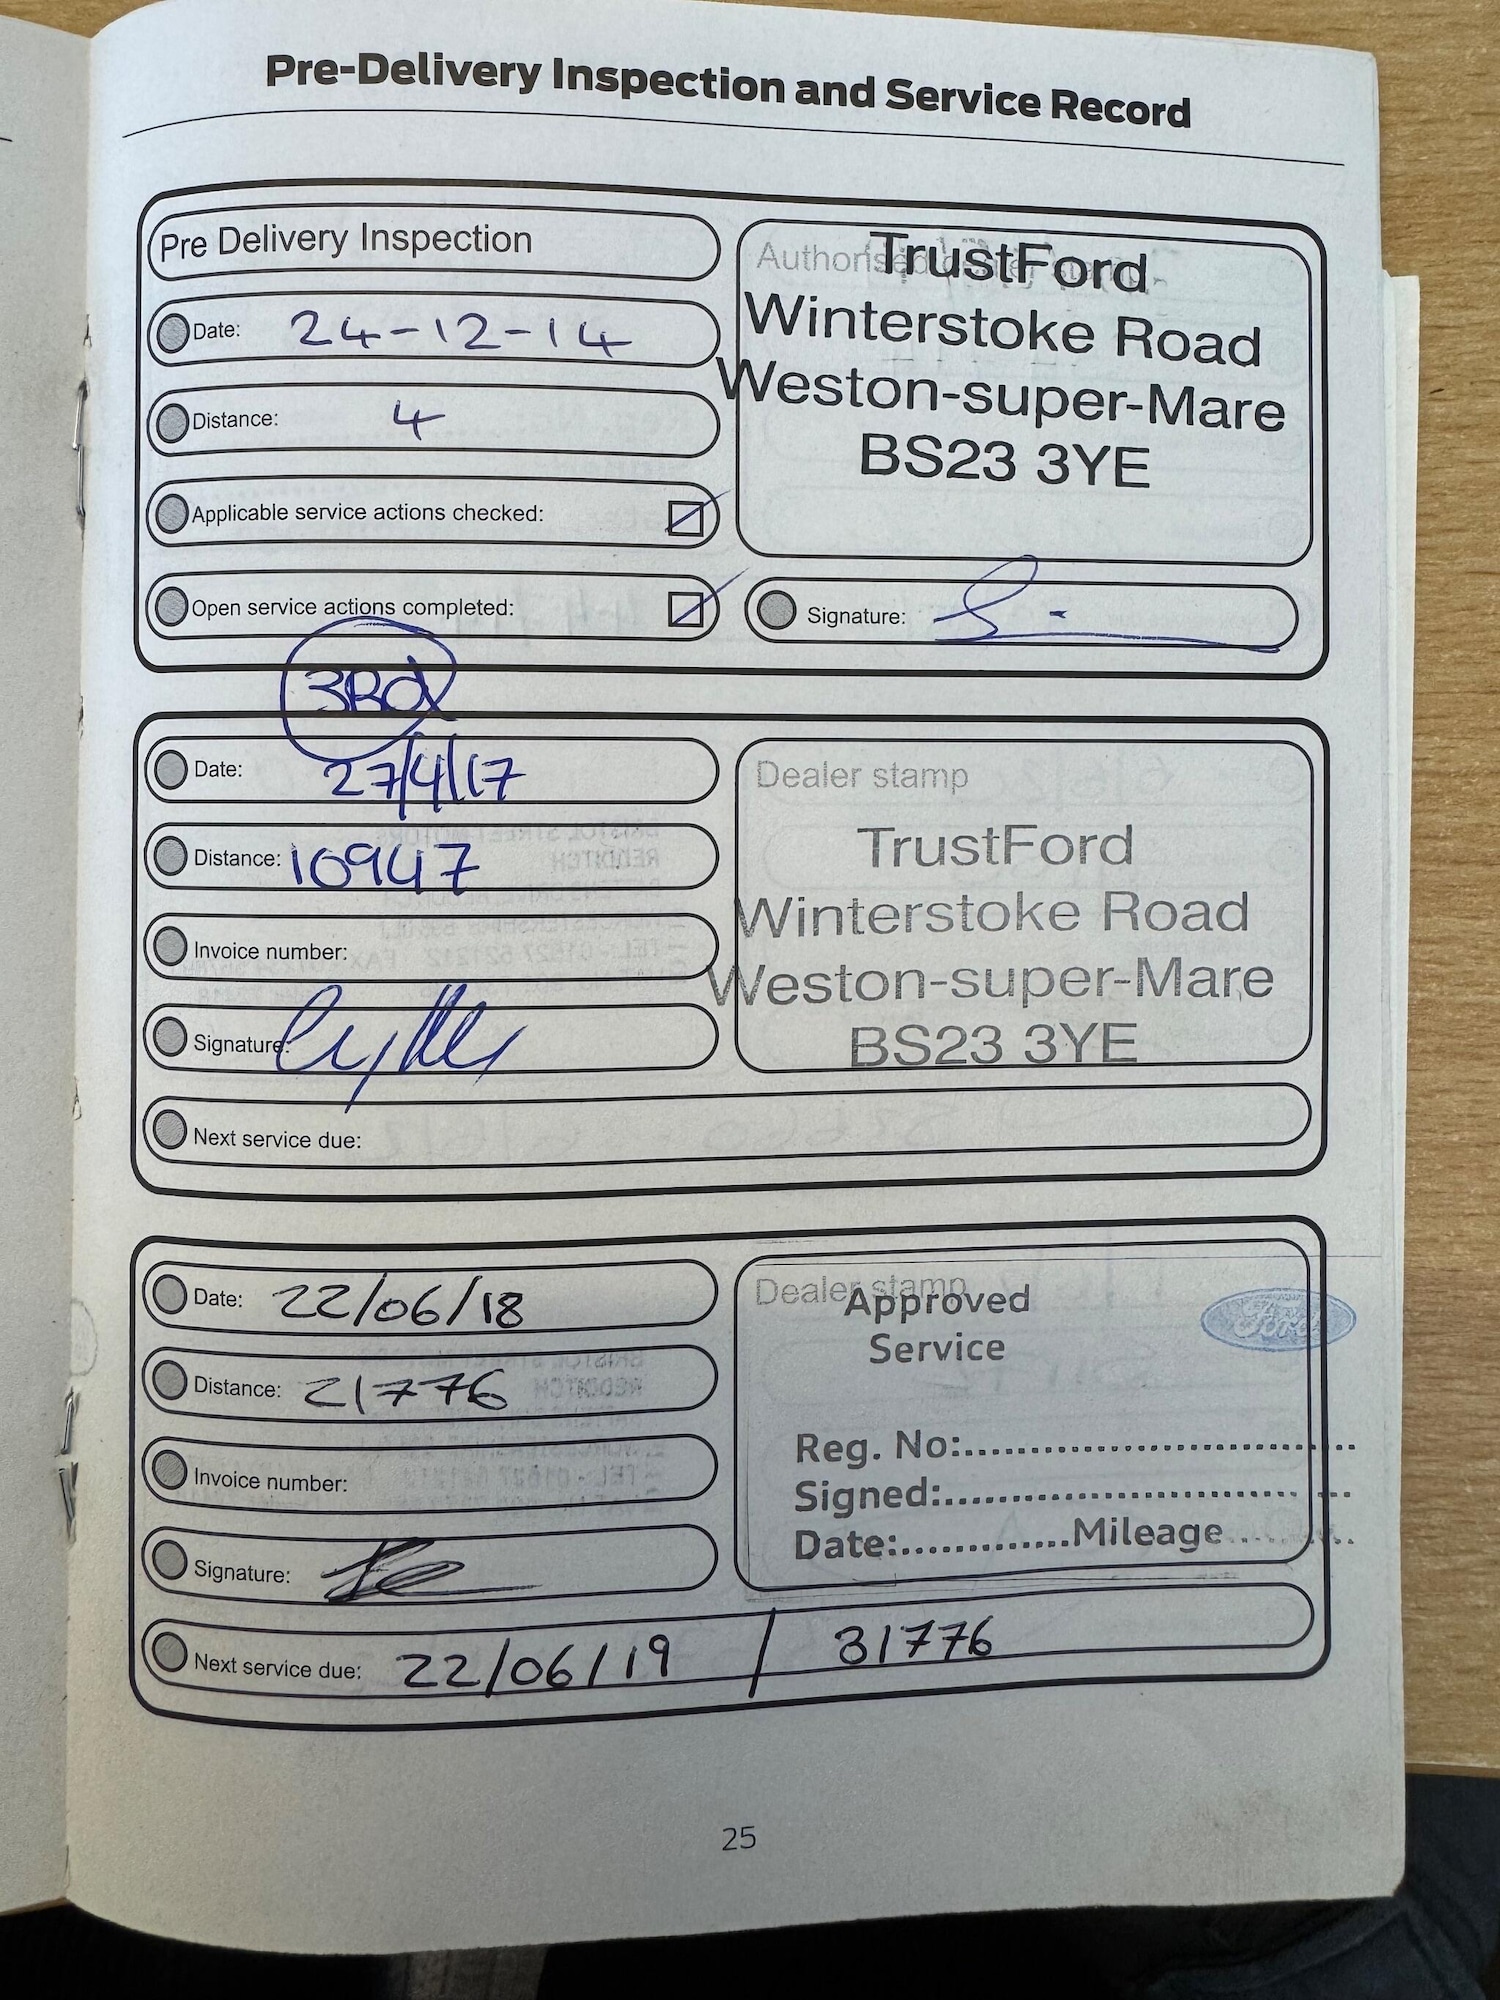 Pre-Delivery Inspection and Service Record
Pre Delivery Inspection
Date: 24-12-14
Distance: 4
Applicable service actions checked:
Open service actions completed:
Authorised
TrustFord
Winterstoke Road
Weston-super-Mare
BS23 3YE
Signature:
3Rd
Date: 27/4/17
Distance: 10947
Invoice number:
Signature:
Next service due:
Dealer stamp
TrustFord
Winterstoke Road
Weston-super-Mare
BS23 3YE
Date: 22/06/18
Distance: 21776
Invoice number:
Signature:
Dealer stamp
Approved
Service
Ford
Reg. No:
Signed:
Date: Mileage
Next service due: 22/06/19 / 31776
25